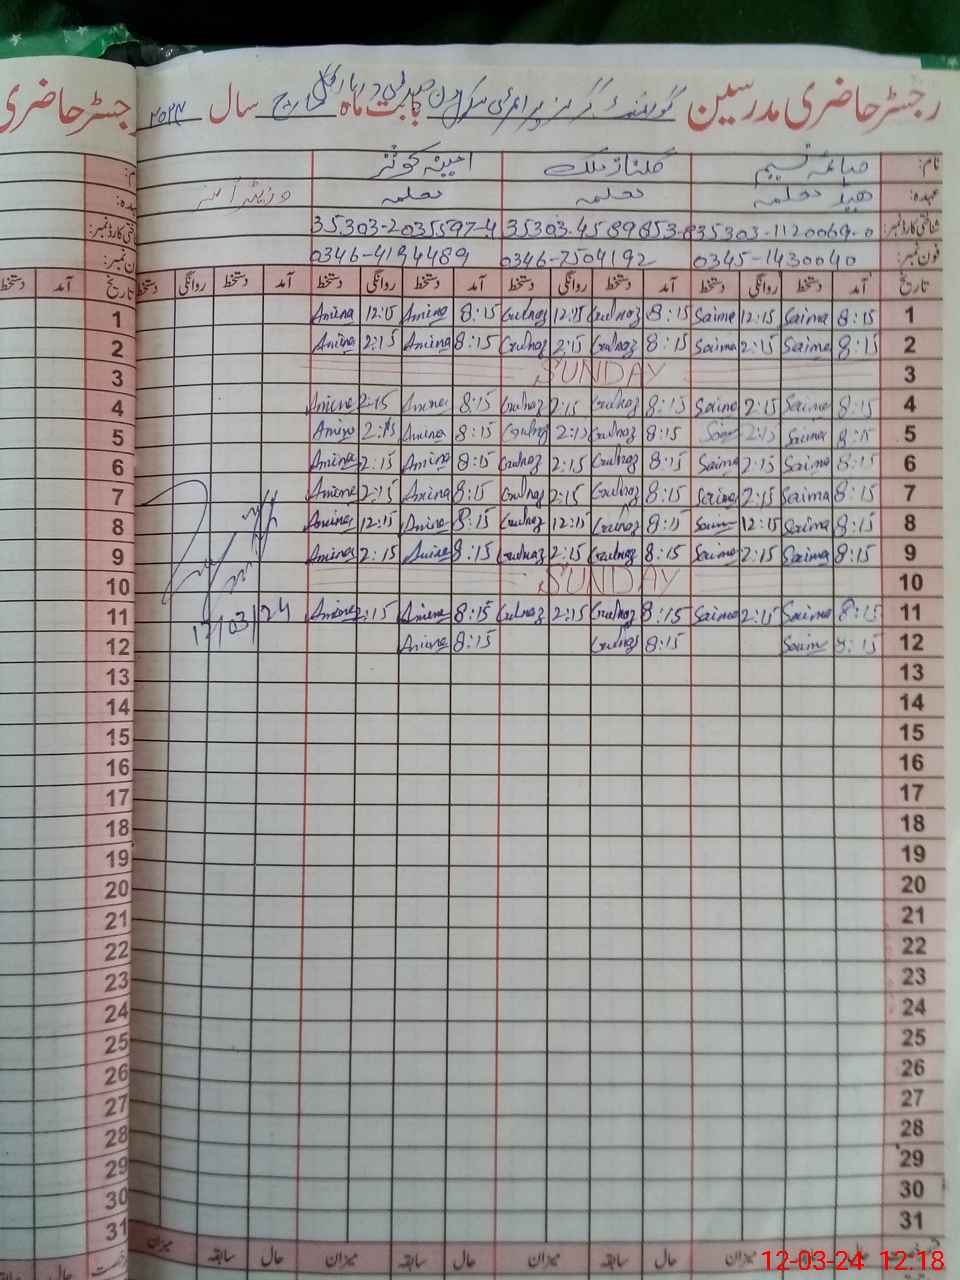 رجسٹر حاضری مدرسین گورنمنٹ گرلز پرائمری سکول بابت ماہ مارچ سال ۲۰۲۴
رجسٹر حاضری
نام: صائمہ نسیم گلناز ملک امینہ کوثر
عہدہ: ہیڈ معلمہ معلمہ معلمہ وزیٹر
شناختی کارڈ نمبر: 35303-1120069-0 35303-4589853-8 35303-2035597-4
فون نمبر: 0345-1430040 0346-7504192 0346-4194489
تاریخ آمد دستخط روانگی دستخط آمد دستخط روانگی دستخط آمد دستخط روانگی دستخط آمد دستخط روانگی دستخط تاریخ آمد دستخط
1 8:15 Saima 12:15 Saima 8:15 Gulnaz 12:15 Gulnaz 8:15 Amina 12:15 Amina 1
2 8:15 Saima 2:15 Saima 8:15 Gulnaz 2:15 Gulnaz 8:15 Amina 2:15 Amina 2
3 SUNDAY 3
4 8:15 Saima 2:15 Saima 8:15 Gulnaz 2:15 Gulnaz 8:15 Amina 2:15 Amina 4
5 8:15 Saima 2:15 Saima 8:15 Gulnaz 2:15 Gulnaz 8:15 Amina 2:15 Amina 5
6 8:15 Saima 2:15 Saima 8:15 Gulnaz 2:15 Gulnaz 8:15 Amina 2:15 Amina 6
7 8:15 Saima 2:15 Saima 8:15 Gulnaz 2:15 Gulnaz 8:15 Amina 2:15 Amina 7
8 8:15 Saima 12:15 Saima 8:15 Gulnaz 12:15 Gulnaz 8:15 Amina 12:15 Amina 8
9 8:15 Saima 2:15 Saima 8:15 Gulnaz 2:15 Gulnaz 8:15 Amina 2:15 Amina 9
10 SUNDAY 10
11 8:15 Saima 2:15 Saima 8:15 Gulnaz 2:15 Gulnaz 8:15 Amina 2:15 Amina 12/03/24 11
12 8:15 Saima 8:15 Gulnaz 8:15 Amina 12
13 13
14 14
15 15
16 16
17 17
18 18
19 19
20 20
21 21
22 22
23 23
24 24
25 25
26 26
27 27
28 28
29 29
30 30
31 31
حال سابقہ میزان حال سابقہ میزان حال سابقہ میزان حال سابقہ میزان حال سابقہ
12-03-24 12:18